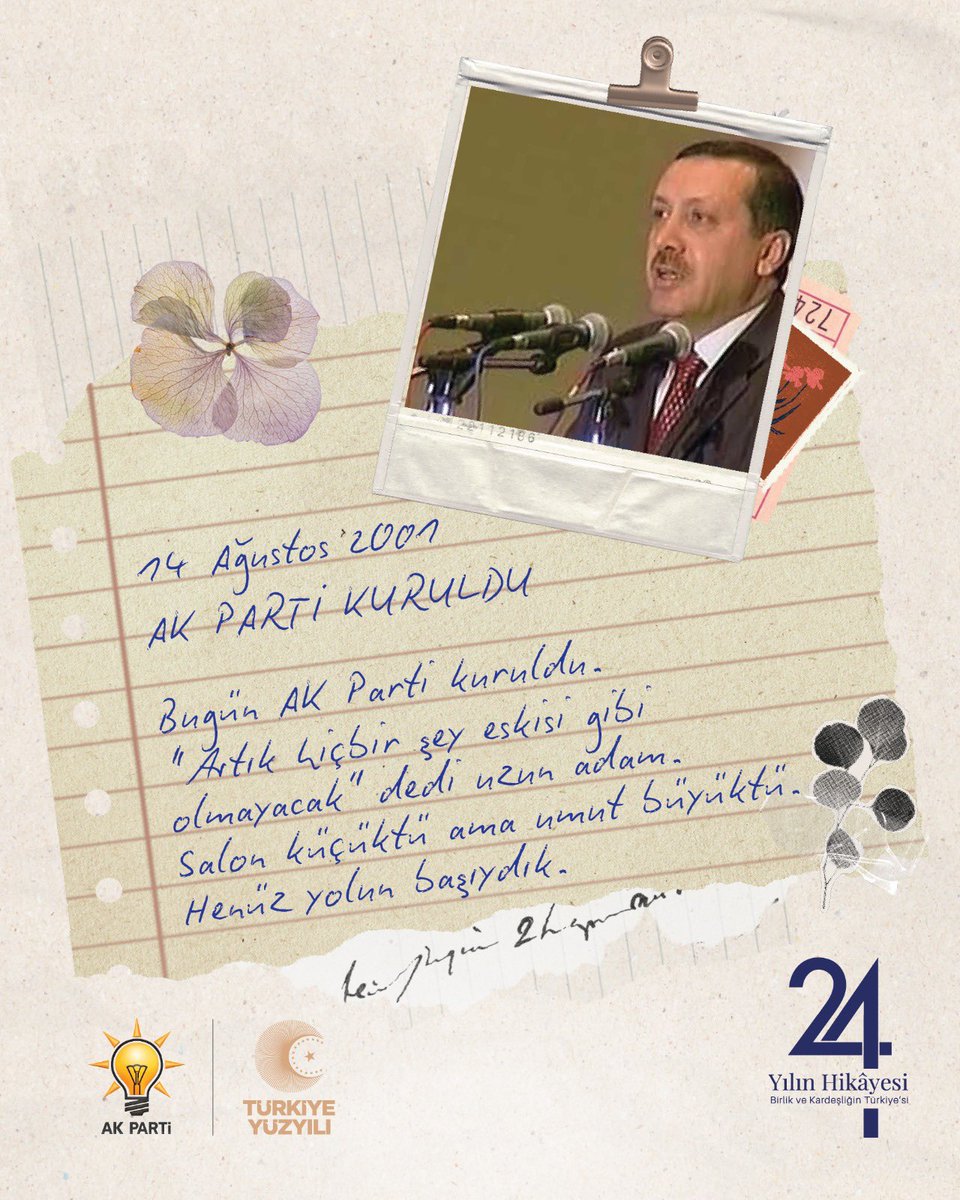 724
14 Ağustos 2001
AK PARTİ KURULDU
Bugün AK Parti kuruldu.
"Artık hiçbir şey eskisi gibi
olmayacak" dedi uzun adam.
Salon küçüktü ama umut büyüktü.
Henüz yolun başıydık.
AK PARTİ
TÜRKİYE
YÜZYILI
24
Yılın Hikâyesi
Birlik ve Kardeşliğin Türkiye'si